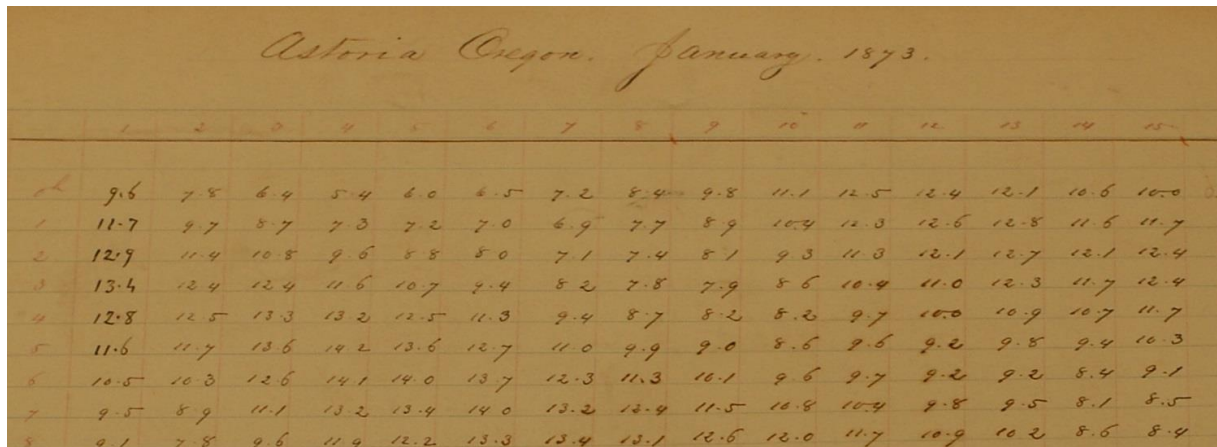 Astoria Oregon. January. 1873.
1 2 3 4 5 6 7 8 9 10 11 12 13 14 15
0h 9.6 7.8 6.4 5.4 6.0 6.5 7.2 8.4 9.8 11.1 12.5 12.4 12.1 10.6 10.0
1 11.7 9.7 8.7 7.3 7.2 7.0 6.9 7.7 8.9 10.4 12.3 12.6 12.8 11.6 11.7
2 12.9 11.4 10.8 9.6 8.8 8.0 7.1 7.4 8.1 9.3 11.3 12.1 12.7 12.1 12.4
3 13.4 12.4 12.4 11.6 10.7 9.4 8.2 7.8 7.9 8.6 10.4 11.0 12.3 11.7 12.4
4 12.8 12.5 13.3 13.2 12.5 11.3 9.4 8.7 8.2 8.2 9.7 10.0 10.9 10.7 11.7
5 11.6 11.7 13.6 14.2 13.6 12.7 11.0 9.9 9.0 8.6 9.6 9.2 9.8 9.4 10.3
6 10.5 10.3 12.6 14.1 14.0 13.7 12.3 11.3 10.1 9.6 9.7 9.2 9.2 8.4 9.1
7 9.5 8.9 11.1 13.2 13.4 14.0 13.2 12.4 11.5 10.8 10.4 9.8 9.5 8.1 8.5
8 9.1 7.8 9.6 11.9 12.2 13.3 13.4 13.1 12.6 12.0 11.7 10.9 10.2 8.6 8.4